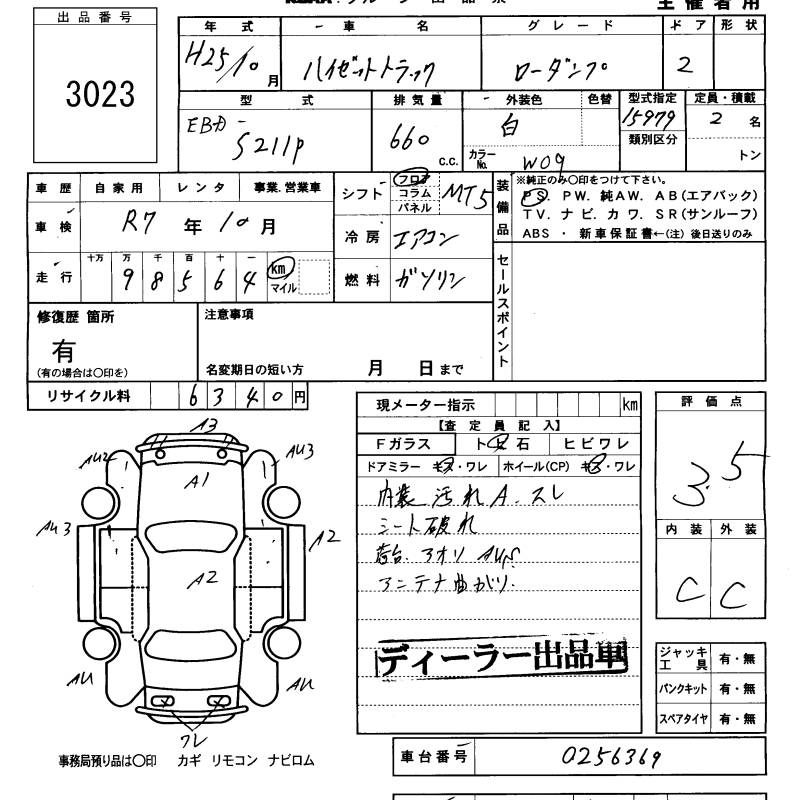 出品番号
3023
主催者用
年式 車名 グレード ドア 形状
H25/10月 ハイゼットトラック ローダンプ 2
型式 排気量 外装色 色替 型式指定 定員・積載
EBD- S211P 660 c.c. 白 15979 2名
類別区分
カラーNo. W09 トン
車歴 自家用 レンタ 事業.営業車
車検 R7年10月
走行 十万 万 千 百 十 一
98564 km マイル
シフト フロア コラム パネル MT5
冷房 エアコン
燃料 ガソリン
装備品
※純正のみ〇印をつけて下さい。
PS. PW. 純AW. AB(エアバック)
TV. ナビ. カワ. SR(サンルーフ)
ABS ・ 新車保証書←(注) 後日送りのみ
セールスポイント
修復歴 箇所
有
(有の場合は〇印を)
注意事項
名変期日の短い方 月 日まで
リサイクル料 6340円
現メーター指示 km
【査定員記入】
Fガラス トビ石 ヒビワレ
ドアミラー キズ・ワレ ホイール(CP) キズ・ワレ
内装 汚れ A.スレ
シート破れ
荷台.アオリ AUS
アンテナ曲がり.
ディーラー出品車
評価点
3.5
内装 外装
C C
ジャッキ工具 有・無
パンクキット 有・無
スペアタイヤ 有・無
車台番号 0256369
A3
AU2 A1 AU3
AU3 A2 A2
AU AU
ワレ
事務局預り品は〇印 カギ リモコン ナビロム